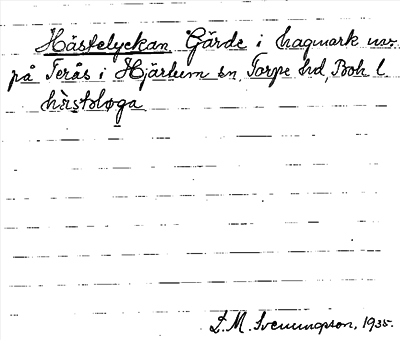 Hästelyckan Gärde i hagmark
på Terås i Hjärtum sn, Torpe hd, Boh l
hàstɷløga
L. M. Svenungsson, 1935.